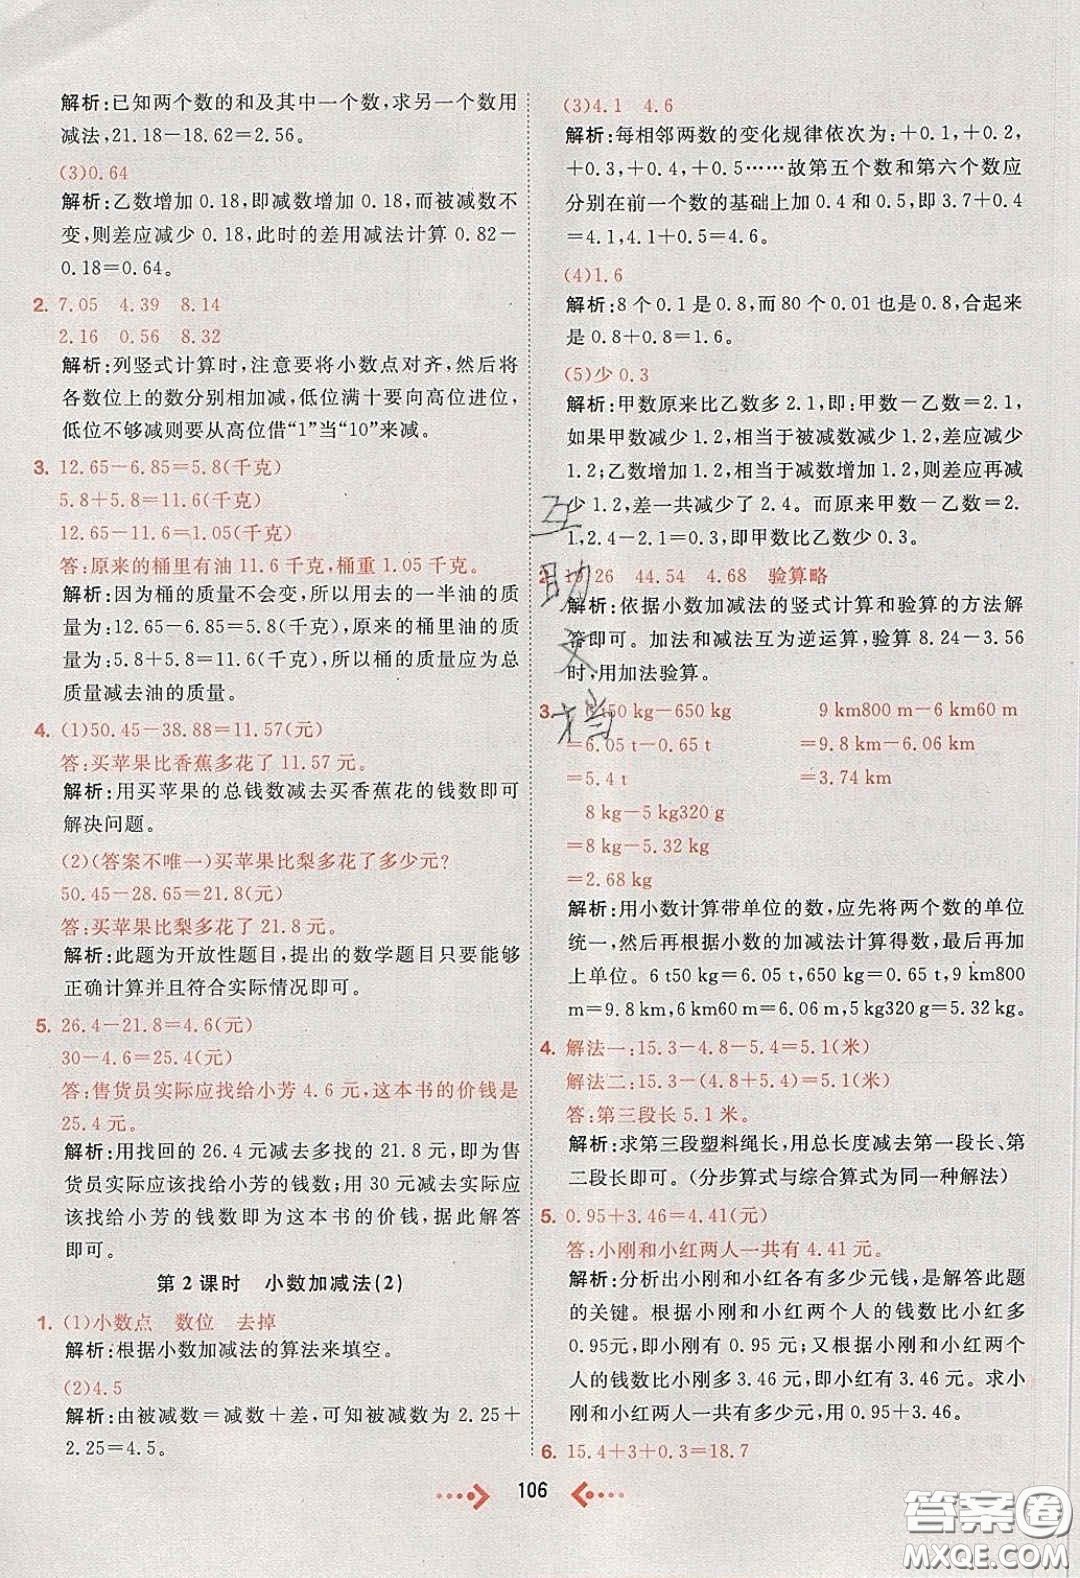 解析:已知两个数的和及其中一个数,求另一个数用
减法,21.18－18.62＝2.56。
(3)0.64
解析:乙数增加 0.18,即减数增加 0.18,而被减数不
变,则差应减少 0.18,此时的差用减法计算 0.82－
0.18＝0.64。
2. 7.05 4.39 8.14
2.16 0.56 8.32
解析:列竖式计算时,注意要将小数点对齐,然后将
各数位上的数分别相加减,低位满十要向高位进位,
低位不够减则要从高位借“1”当“10”来减。
3. 12.65－6.85＝5.8(千克)
5.8＋5.8＝11.6(千克)
12.65－11.6＝1.05(千克)
答:原来的桶里有油 11.6 千克,桶重 1.05 千克。
解析:因为桶的质量不会变,所以用去的一半油的质
量为:12.65－6.85＝5.8(千克),原来的桶里油的质
量为:5.8＋5.8＝11.6(千克),所以桶的质量应为总
质量减去油的质量。
4. (1)50.45－38.88＝11.57(元)
答:买苹果比香蕉多花了 11.57 元。
解析:用买苹果的总钱数减去买香蕉花的钱数即可
解决问题。
(2)(答案不唯一)买苹果比梨多花了多少元?
50.45－28.65＝21.8(元)
答:买苹果比梨多花了 21.8 元。
解析:此题为开放性题目,提出的数学题目只要能够
正确计算并且符合实际情况即可。
5. 26.4－21.8＝4.6(元)
30－4.6＝25.4(元)
答:售货员实际应找给小芳 4.6 元,这本书的价钱是
25.4 元。
解析:用找回的 26.4 元减去多找的 21.8 元,就是售
货员实际应该找给小芳的钱数;用 30 元减去实际应
该找给小芳的钱数即为这本书的价钱,据此解答
即可。
第 2 课时 小数加减法(2)
1. (1)小数点 数位 去掉
解析:根据小数加减法的算法来填空。
(2)4.5
解析:由被减数＝减数＋差,可知被减数为 2.25＋
2.25＝4.5。
(3)4.1 4.6
解析:每相邻两数的变化规律依次为:＋0.1,＋0.2,
＋0.3,＋0.4,＋0.5……故第五个数和第六个数应
分别在前一个数的基础上加 0.4 和 0.5,即 3.7＋0.4
＝4.1,4.1＋0.5＝4.6。
(4)1.6
解析:8 个 0.1 是 0.8,而 80 个 0.01 也是 0.8,合起来
是 0.8＋0.8＝1.6。
(5)少 0.3
解析:甲数原来比乙数多 2.1,即:甲数－乙数＝2.1,
如果甲数减少 1.2,相当于被减数减少 1.2,差应减少
1.2;乙数增加 1.2,相当于减数增加 1.2,则差应再减
少 1.2,差一共减少了 2.4。而原来甲数－乙数＝2.
1,2.4－2.1＝0.3,即甲数比乙数少 0.3。
26 44.54 4.68 验算略
解析:依据小数加减法的竖式计算和验算的方法解
答即可。加法和减法互为逆运算,验算 8.24－3.56
时,用加法验算。
3. 6 t50 kg－650 kg 9 km800 m－6 km60 m
＝6.05 t－0.65 t ＝9.8 km－6.06 km
＝5.4 t ＝3.74 km
8 kg－5 kg320 g
＝8 kg－5.32 kg
＝2.68 kg
解析:用小数计算带单位的数,应先将两个数的单位
统一,然后再根据小数的加减法计算得数,最后再加
上单位。6 t50 kg＝6.05 t,650 kg＝0.65 t,9 km800
m＝9.8 km,6 km60 m＝6.06 km,5 kg320 g＝5.32 kg。
4. 解法一:15.3－4.8－5.4＝5.1(米)
解法二:15.3－(4.8＋5.4)＝5.1(米)
答:第三段长 5.1 米。
解析:求第三段塑料绳长,用总长度减去第一段长、第
二段长即可。(分步算式与综合算式为同一种解法)
5. 0.95＋3.46＝4.41(元)
答:小刚和小红两人一共有 4.41 元。
解析:分析出小刚和小红各有多少元钱,是解答此题
的关键。根据小刚和小红两个人的钱数比小红多
0.95元,即小刚有 0.95 元;又根据小刚和小红两个人
的钱数比小刚多 3.46 元,即小红有 3.46 元。求小
刚和小红两人一共有多少元,用 0.95＋3.46。
6. 15.4＋3＋0.3＝18.7
106
互
助
文
档
答案圈
MXQE.COM